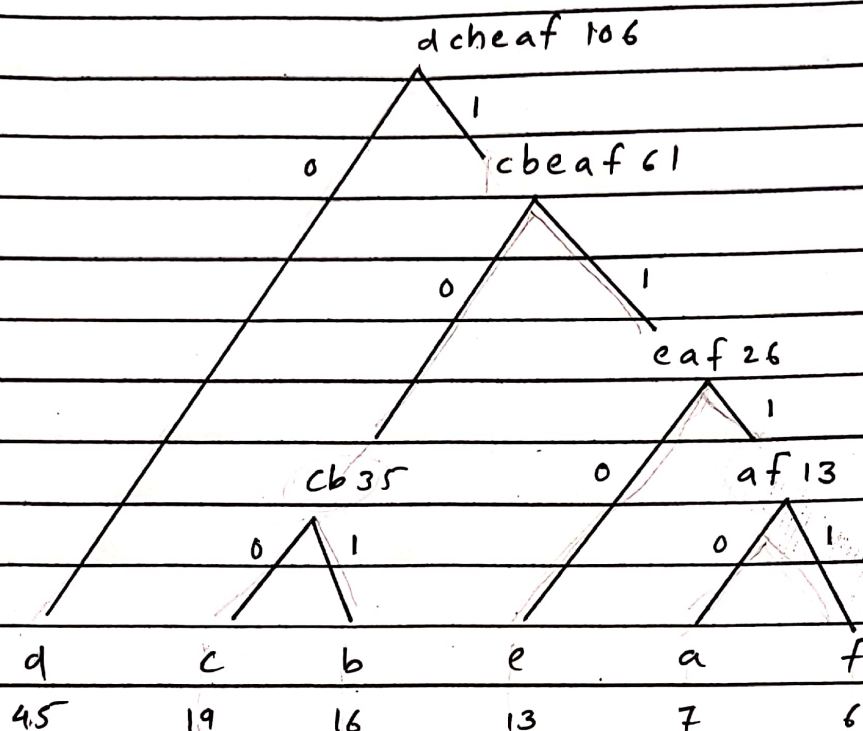 dcbeaf 106
1
0
cbeaf 61
0 1
eaf 26
1
0
cb 35
af 13
0 1
0 1
d c b e a f
45 19 16 13 7 6